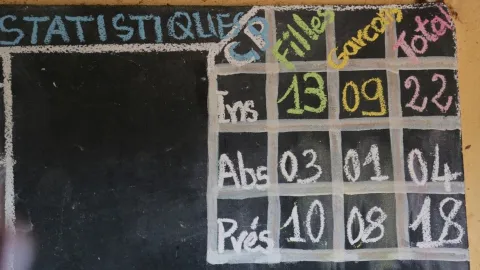 STATISTIQUES
CP Filles Garçons Total
Ins 13 09 22
Abs 03 01 04
Prés 10 08 18